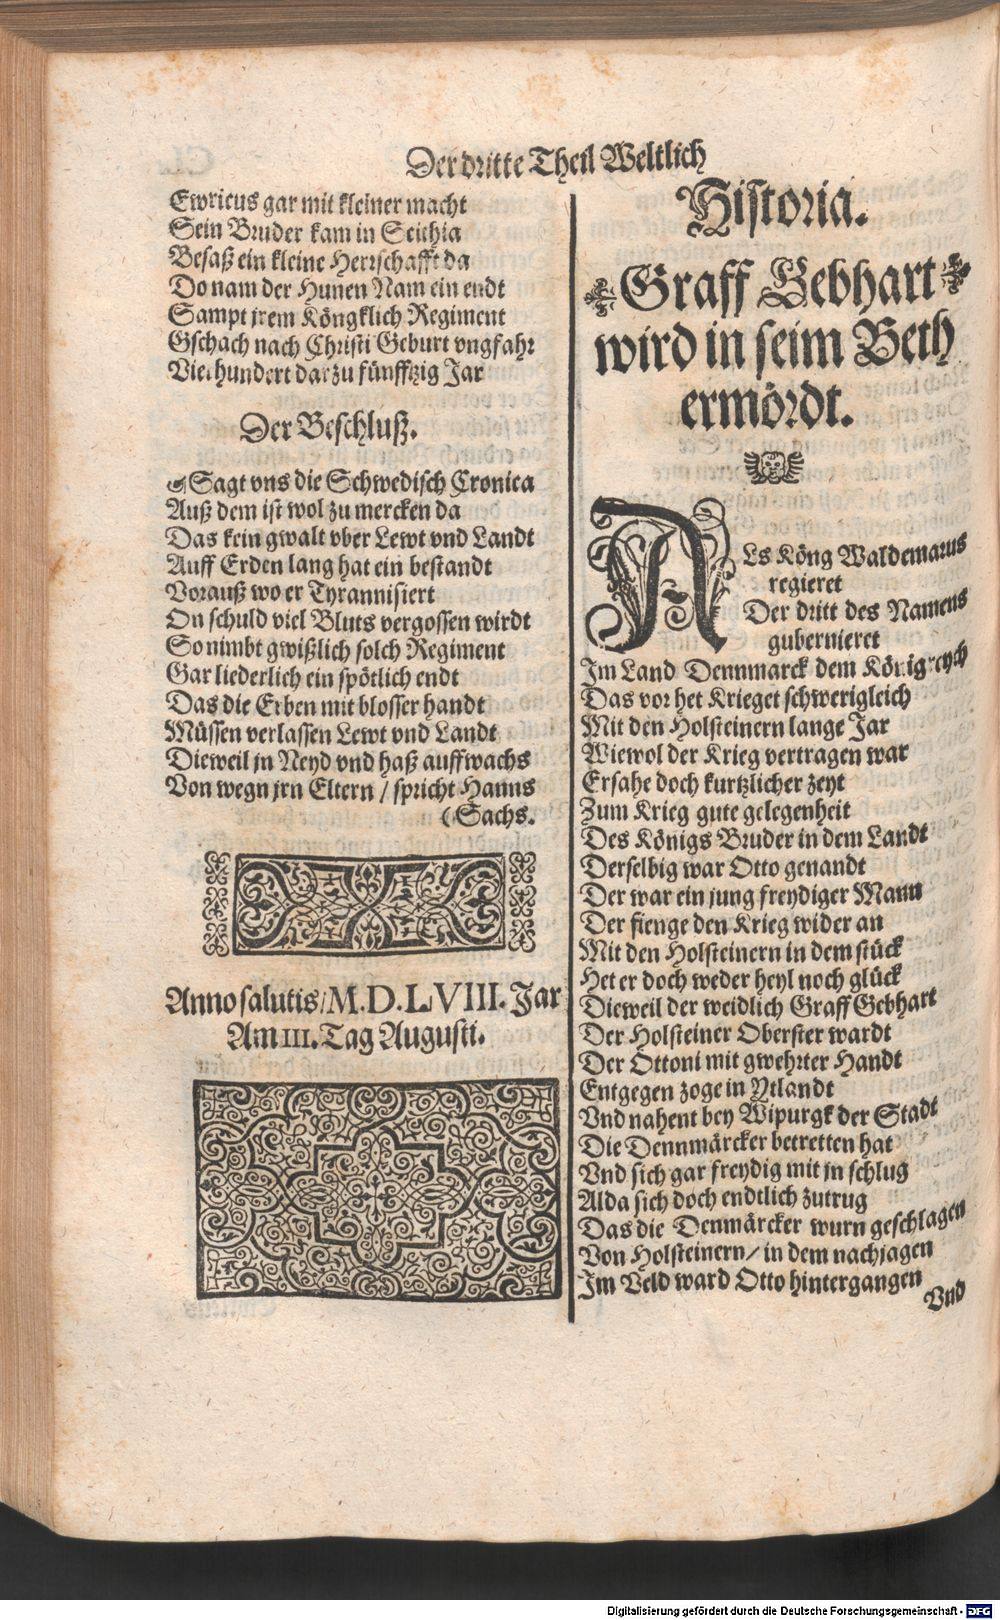 Der dritte Theil Weltlich
Ewricus gar mit kleiner macht
Sein Bruder kam in Scithia
Besaß ein kleine Herrschafft da
Do nam der Hunen Nam ein endt
Sampt jrem Köngklich Regiment
Gschach nach Christi Geburt vngfahr
Vierhundert darzu fünfftzig Jar
Der Beschluß.
Sagt vns die Schwedisch Cronica
Auß dem ist wol zu mercken da
Das kein gwalt vber Lewt vnd Landt
Auff Erden lang hat ein bestandt
Vorauß wo er Tyrannisiert
On schuld viel Bluts vergossen wirdt
So nimbt gwißlich solch Regiment
Gar liederlich ein spötlich endt
Das die Erben mit blosser handt
Müssen verlassen Lewt vnd Landt
Dieweil jn Neyd vnd haß auffwachs
Von wegn jrn Eltern / spricht Hanns
(Sachs.
Anno salutis / M.D.LVIII. Jar
Am III. Tag Augusti.
Historia.
Graff Gebhart
wird in seim Beth
ermördt.
ALs Köng Waldemarus
regieret
Der dritt des Namens
gubernieret
Im Land Dennmarck dem Königreych
Das vor het Krieget schwerigleich
Mit den Holsteinern lange Jar
Wiewol der Krieg vertragen war
Ersahe doch kurtzlicher zeyt
Zum Krieg gute gelegenheit
Des Königs Bruder in dem Landt
Derselbig war Otto genandt
Der war ein jung freydiger Mann
Der fienge den Krieg wider an
Mit den Holsteinern in dem stück
Het er doch weder heyl noch glück
Dieweil der weidlich Graff Gebhart
Der Holsteiner Oberster wardt
Der Ottoni mit gwehrter Handt
Entgegen zoge in Ytlandt
Vnd nahent bey Wipurgk der Stadt
Die Dennmärcker betretten hat
Vnd sich gar freydig mit jn schlug
Alda sich doch endtlich zutrug
Das die Denmärcker wurn geschlagen
Von Holsteinern / in dem nachjagen
Im Veld ward Otto hintergangen
Vnd
Digitalisierung gefördert durch die Deutsche Forschungsgemeinschaft - DFG